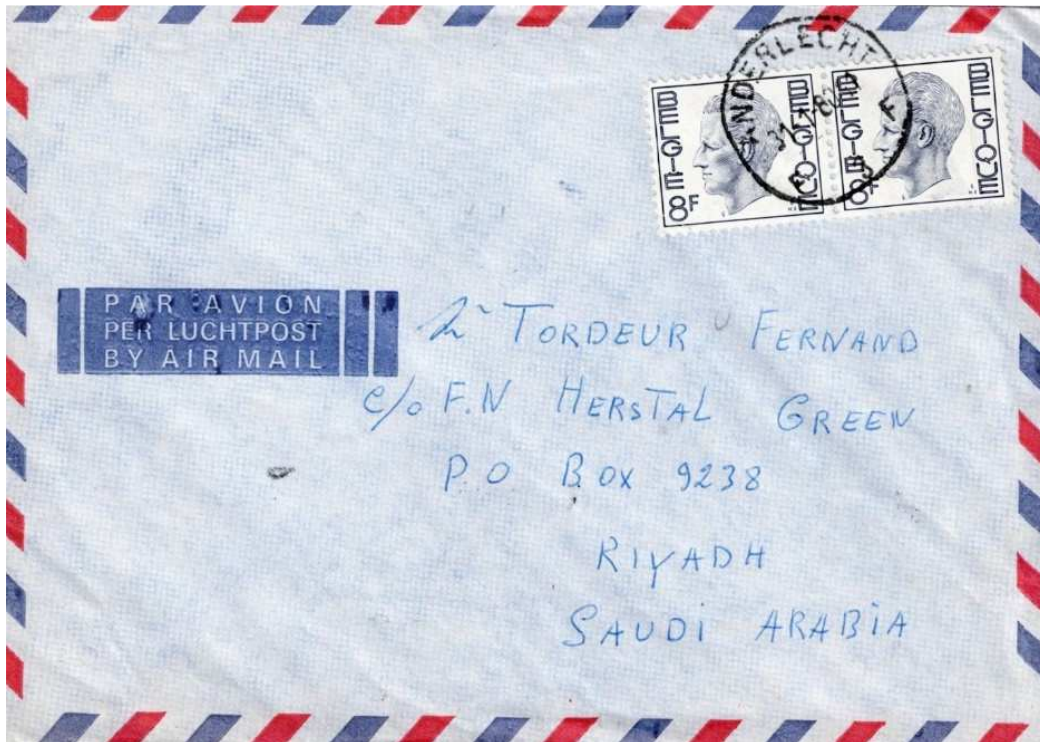 ANDERLECHT
BELGIE BELGIQUE
8F
BELGIE BELGIQUE
8F
PAR AVION
PER LUCHTPOST
BY AIR MAIL
TORDEUR FERNAND
c/o F.N HERSTAL GREEN
P.O BOX 9238
RIYADH
SAUDI ARABIA